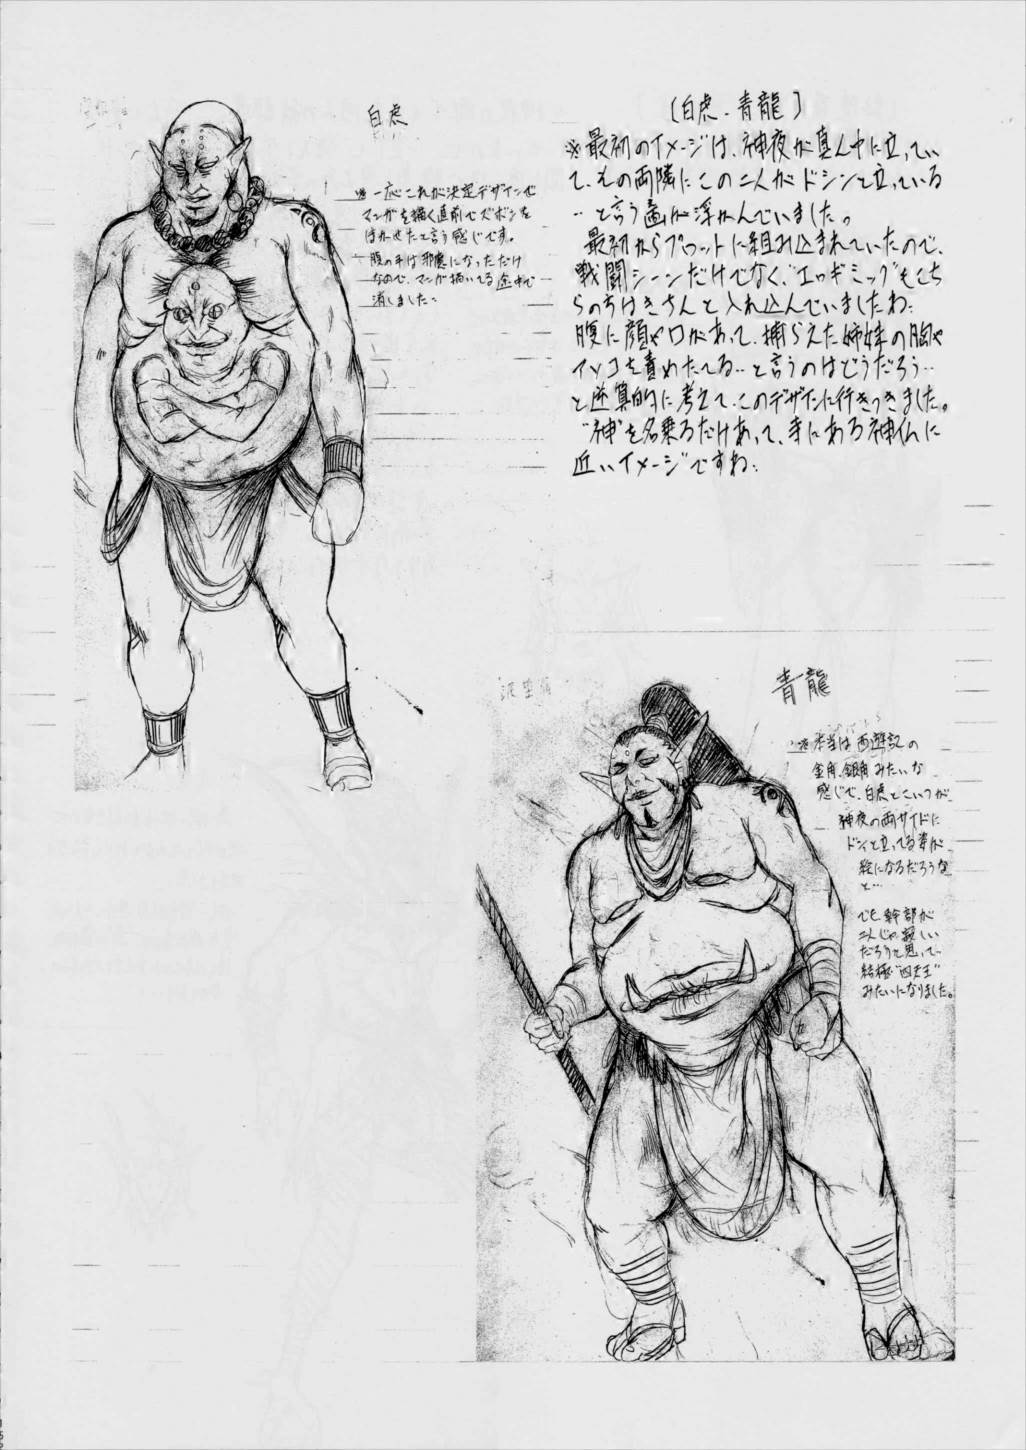 白虎
※ 一応これが決定デザインで
マンガを描く直前でズボンを
はかせたと言う感じです。
腹の手は邪魔になっただけ
なので、マンガ描いてる途中で
消しました…
(白虎・青龍)
※最初のイメージは、神夜が真ん中に立ってい
て、その両隣にこの二人がドシンと立っている
…と言う画が浮かんでいました。
最初からプロットに組み込まれていたので、
戦闘シーンだけでなく、"エロギミック"もこち
らのちはきさんと入れ込んでいましたね…
腹に顔や口があって、捕らえた姉妹の胸や
アソコを責めたてる…と言うのはどうだろう…
と逆算的に考えて、このデザインに行きつきました。
"神"を名乗るだけあって、手にある神仏に
近いイメージですね…
青龍
※本当は西遊記の
金角、銀角みたいな
感じで、白虎とこいつが、
神夜の両サイドに
ドンと立ってる姿が
絵になるだろうな
と…
でも、幹部が
二人じゃ寂しい
だろうと思って…
結極"四天王"
みたいになりました。